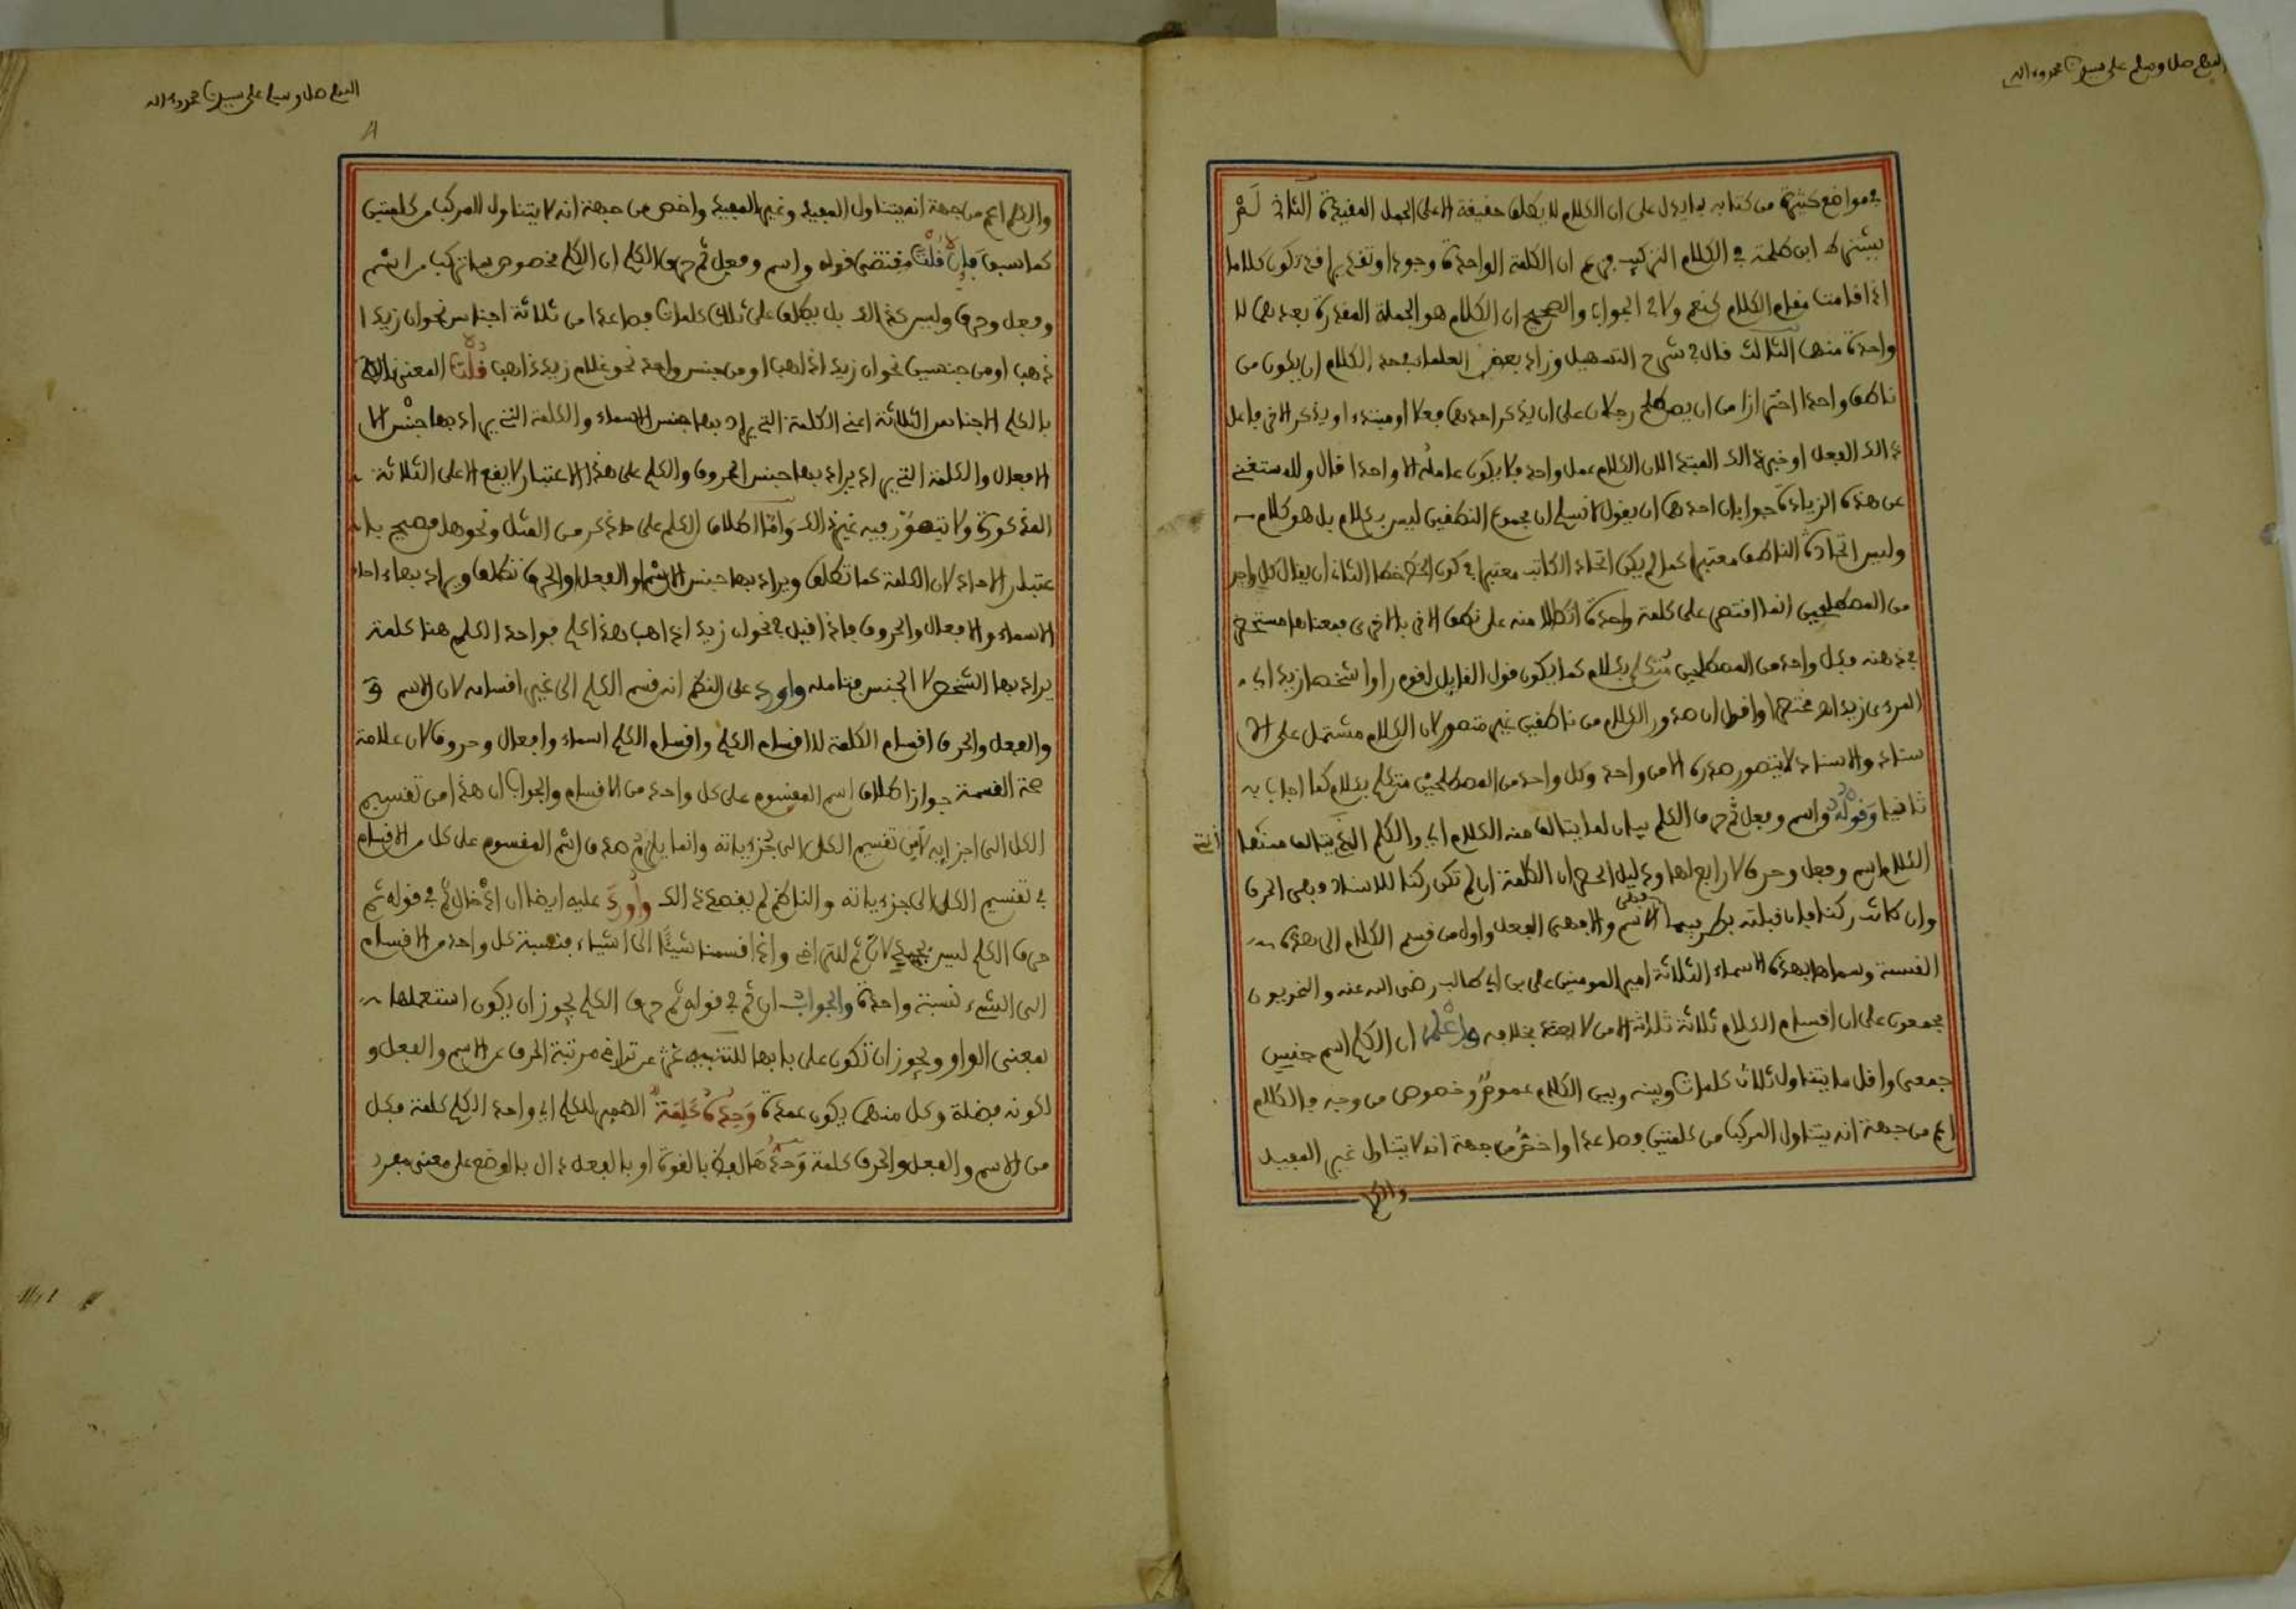 اللهم صل وسلم على سيدنا محمد وءاله
في مواضع كثيرة من كتابه بما يدل على ان الكلام لا يطلق حقيقة الا على الجمل المفيدة الثاني لم
يشترط ابن طلحة في الكلام التركيب فزعم ان الكلمة الواحدة وجودا وتقديرا قد تكون كلاما
اذا قامت مقام الكلام كنعم ولا في الجواب والصحيح ان الكلام هو الجملة المقدرة بعدهما لا
واحدة منهما الثالث قال في شرح التسهيل وزاد بعض العلماء في حد الكلام ان يكون من
ناطق واحد احترازا من ان يصطلح رجلان على ان يذكر احدهما فعلا او مبتدءا ويذكر الاخر فاعل
ذالك الفعل او خبر ذالك المبتدا لان الكلام عمل واحد فلا يكون عامله الا واحدا قال وللمستغني
عن هذه الزيادة جوابان احدهما ان يقول لا نسلم ان مجموع النطقين ليس بكلام بل هو كلام
وليس اتحاد الناطق معتبرا كما لم يكن اتحاد الكاتب معتبرا في كون الخط خطا الثاني ان يقال كل واحد
من المصطلحين انما اقتصر على كلمة واحدة اتكالا منه على نطق الاخر بالاخرى فمعناها مستحضر
في ذهنه فكل واحد من المصطلحين متكلم بكلام كما يكون قول القايل لقوم راوا شبحا زيد اي
المرءى زيد اهـ مختصرا واقول ان صدور الكلام من ناطقين غير متصور لان الكلام مشتمل على الا
سناد والاسناد لا يتصور صدره الا من واحد وكل واحد من المصطلحين متكلم بكلام كما اجاب به
ثانيا وقوله واسم وفعل ثم حرف الكلم بيان لما يتالف منه الكلام اي والكلم الذي يتالف منه
الكلام اسم وفعل وحرف لا رابع لها ودليل الحصر ان الكلمة ان لم تكن ركنا للاسناد فهي الحرف
وان كانت ركنا فان قبلته بطرفيها فهي الاسم والا فهي الفعل واول من قسم الكلام الى هذه
القسمة وسماها بهذه الاسماء الثلاثة امير المومنين علي بن ابي طالب رضي الله عنه والنحويون
مجمعون على ان اقسام الكلام ثلاثة الا من لا يعتد بخلافه واعلم ان الكلم اسم جنس
جمعي واقل ما يتناول ثلاث كلمات وبينه وبين الكلام عموم وخصوص من وجه فالكلام
اعم من جهة انه يتناول المركب من كلمتين فصاعدا واخص من جهة انه لا يتناول غير المفيد
والكلم
اللهم صل وسلم على سيدنا محمد وءاله
٨
والكلم اعم من جهة انه يتناول المفيد وغير المفيد واخص من جهة انه لا يتناول المركب من كلمتين
كما سبق فان قلت مقتضى قوله واسم وفعل ثم حرف الكلم ان الكلم مخصوص بما تركب من اسم
وفعل وحرف وليس كذالك بل يطلق على ثلاث كلمات فصاعدا من ثلاثة اجناس نحو ان زيدا
ذهب او من جنسين نحو ان زيدا ذاهب او من جنس واحد نحو غلام زيد ذاهب قلت المعني
بالكلم الاجناس الثلاثة اعني الكلمة التي يراد بها جنس الاسماء والكلمة التي يراد بها جنس
الافعال والكلمة التي يراد بها جنس الحروف والكلم على هذا الاعتبار لا يقع الا على الثلاثة
المذكورة ولا يتصور فيه غير ذالك واما اطلاق الكلم على ما ذكر من المثل ونحوها فصحيح با
عتبار الاحاد لان الكلمة كما تطلق ويراد بها جنس الاسم او الفعل او الحرف تطلق ويراد بها احاد
الاسماء والافعال والحروف فاذا قيل في نحو ان زيدا ذاهب هذا كلم فواحد الكلم هنا كلمة
يراد بها الشخص لا الجنس فتامله واورد على النظم انه قسم الكلم الى غير اقسامه لان الاسم
والفعل والحرف اقسام الكلمة لا اقسام الكلم واقسام الكلم اسماء وافعال وحروف لان علامة
صحة القسمة جواز اطلاق اسم المقسوم على كل واحد من الاقسام والجواب ان هذا من تقسيم
الكل الى اجزايه لا من تقسيم الكلي الى جزءياته وانما يلزم صدق اسم المقسوم على كل من الاقسام
في تقسيم الكلي الى جزءياته والناظم لم يقصد ذالك واورد عليه ايضا ان ادخال ثم في قوله ثم
حرف الكلم ليس بجيد لان ثم للتراخي واذا قسمنا شيئا الى اشياء فنسبة كل واحد من الاقسام
الى الشيء نسبة واحدة والجواب ان ثم في قوله ثم حرف الكلم يجوز ان يكون استعملها
بمعنى الواو ويجوز ان تكون على بابها للتنبيه على تراخي مرتبة الحرف عن الاسم والفعل
لكونه فضلة وكل منهما يكون عمدة وحده كلمة الضمير للكلم اي واحد الكلم كلمة فكل
من الاسم والفعل والحرف كلمة وحدها لفظ بالقوة او بالفعل دال بالوضع على معنى مفرد